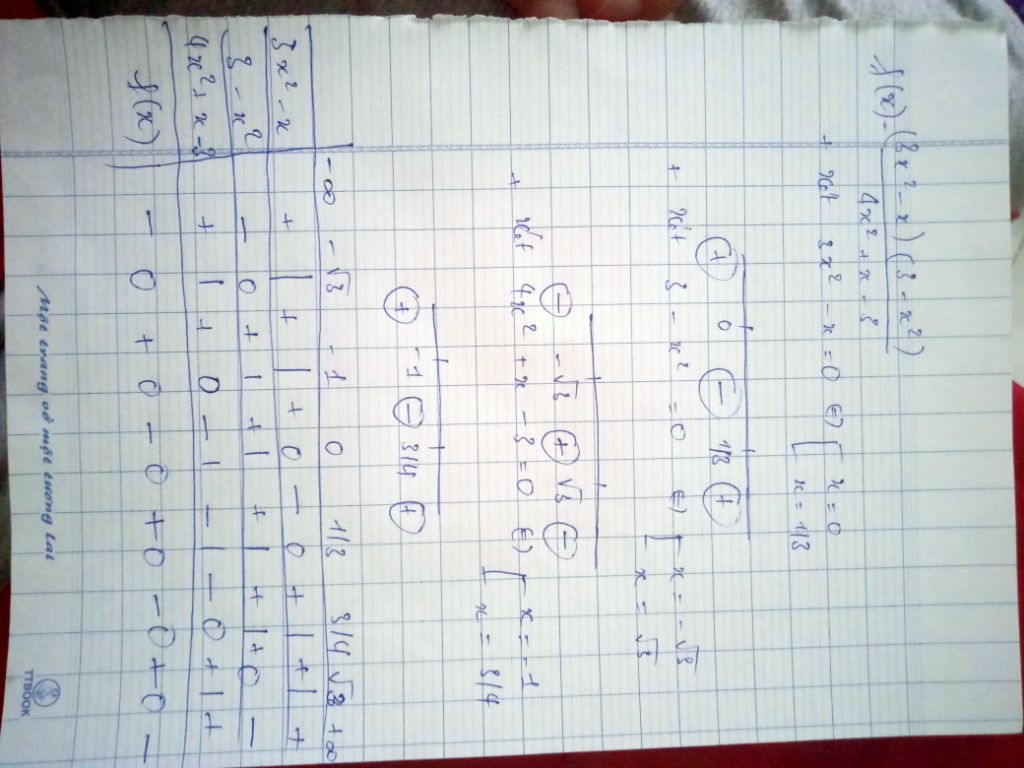 f(x) = (3x² - x)(3 - x²)
4x² + x - 3
+ xét 3x² - x = 0 ⇔ [ x = 0
x = 1/3
+ 0 - 1/3 +
+ xét 3 - x² = 0 ⇔ [ x = -√3
x = √3
- -√3 + √3 -
+ xét 4x² + x - 3 = 0 ⇔ [ x = -1
x = 3/4
+ -1 - 3/4 +
-∞ -√3 -1 0 1/3 3/4 √3 +∞
3x² - x + | + | + 0 - 0 + | + | +
3 - x² - 0 + | + | + | + | + 0 -
4x² + x - 3 + | + 0 - | - | - 0 + | +
f(x) - 0 + 0 - 0 + 0 - 0 + 0 -
Một trang vở một tương lai
TTBOOK